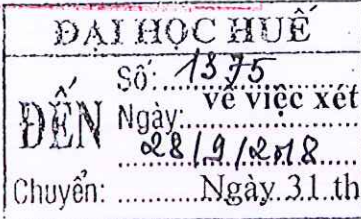 ĐẠI HỌC HUẾ
Số: 1375
ĐẾN Ngày: về việc xét
28/9/2018
Chuyển: Ngày 31 th